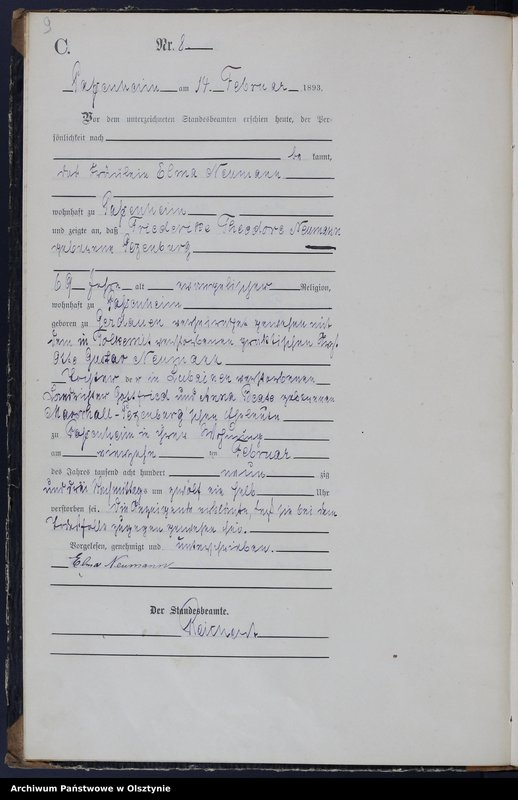 9
C.
Nr. 8
Passenheim am 14. Februar 1893.
Vor dem unterzeichneten Standesbeamten erschien heute, der Per-
sönlichkeit nach
be kannt,
das Fräulein Elma Neumann
wohnhaft zu Passenheim
und zeigte an, daß Friederike Theodore Neumann
geborene
69 Jahre alt evangelischer Religion,
wohnhaft zu Passenheim
geboren zu Gerdauen verheirathet gewesen mit
dem in Tolkemit verstorbenen praktischen Arzt
Otto Gustav Neumann
Tochter der in verstorbenen
Gottfried und Anna Beate geborenen
Eheleute
zu Passenheim in ihrer Wohnung
am vierzehn ten Februar
des Jahres tausend acht hundert neun zig
und drei Vormittags um zwölf ein halb Uhr
verstorben sei. Die Anzeigende erklärte, daß sie bei dem
Todesfalle zugegen gewesen sei.
Vorgelesen, genehmigt und unterschrieben.
Elma Neumann
Der Standesbeamte.
Archiwum Państwowe w Olsztynie